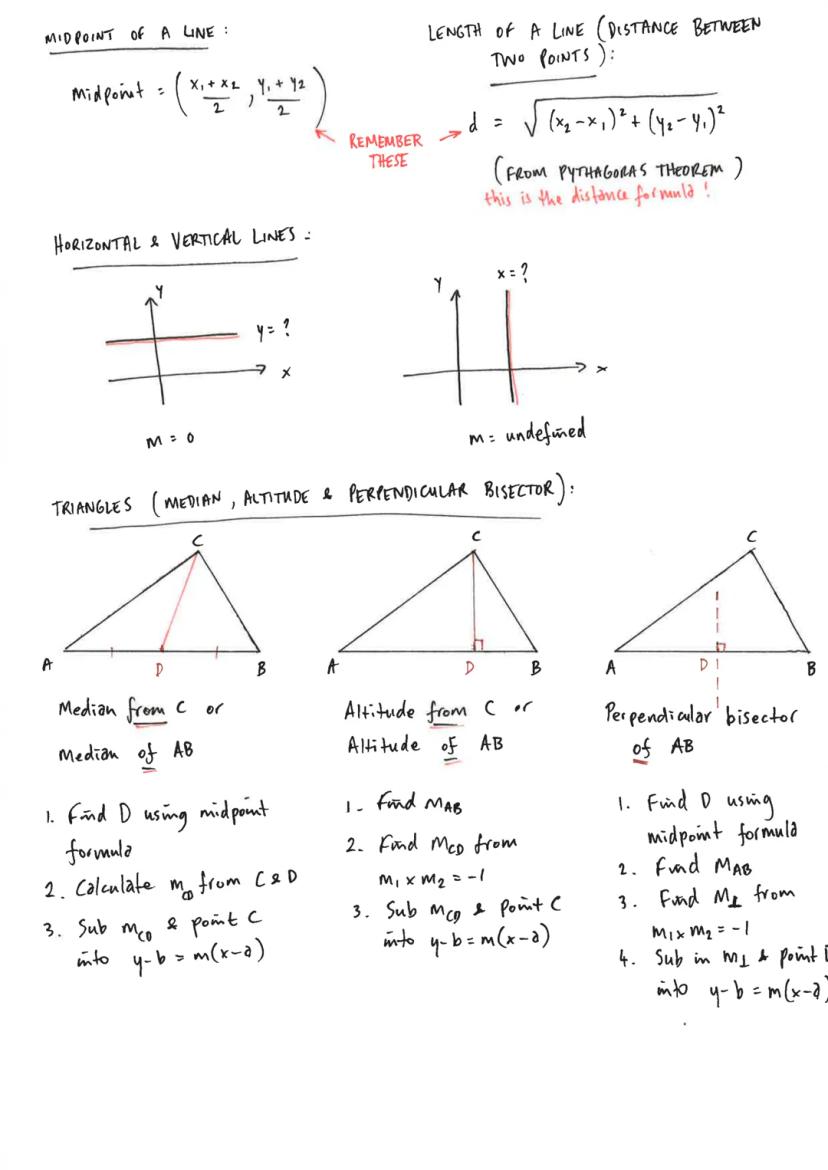 MIDPOINT OF A LINE :
Midpoint = ( x₁ + x₂ / 2 , y₁ + y₂ / 2 )
LENGTH OF A LINE (DISTANCE BETWEEN
TWO POINTS) :
d = √(x₂ - x₁)² + (y₂ - y₁)²
REMEMBER
THESE
(FROM PYTHAGORAS THEOREM)
this is the distance formula !
HORIZONTAL & VERTICAL LINES :
y
y = ?
x
m = 0
y
x = ?
x
m = undefined
TRIANGLES (MEDIAN, ALTITUDE & PERPENDICULAR BISECTOR) :
C
A
D
B
Median from C or
Median of AB
1. Find D using midpoint
formula
2. Calculate m_CD from C & D
3. Sub m_CD & point C
into y - b = m(x - a)
C
A
D
B
Altitude from C or
Altitude of AB
1. Find M_AB
2. Find M_CD from
m₁ x m₂ = -1
3. Sub M_CD & point C
into y - b = m(x - a)
C
A
D
B
Perpendicular bisector
of AB
1. Find D using
midpoint formula
2. Find M_AB
3. Find M⊥ from
m₁ x m₂ = -1
4. Sub in M⊥ & point D
into y - b = m(x - a)